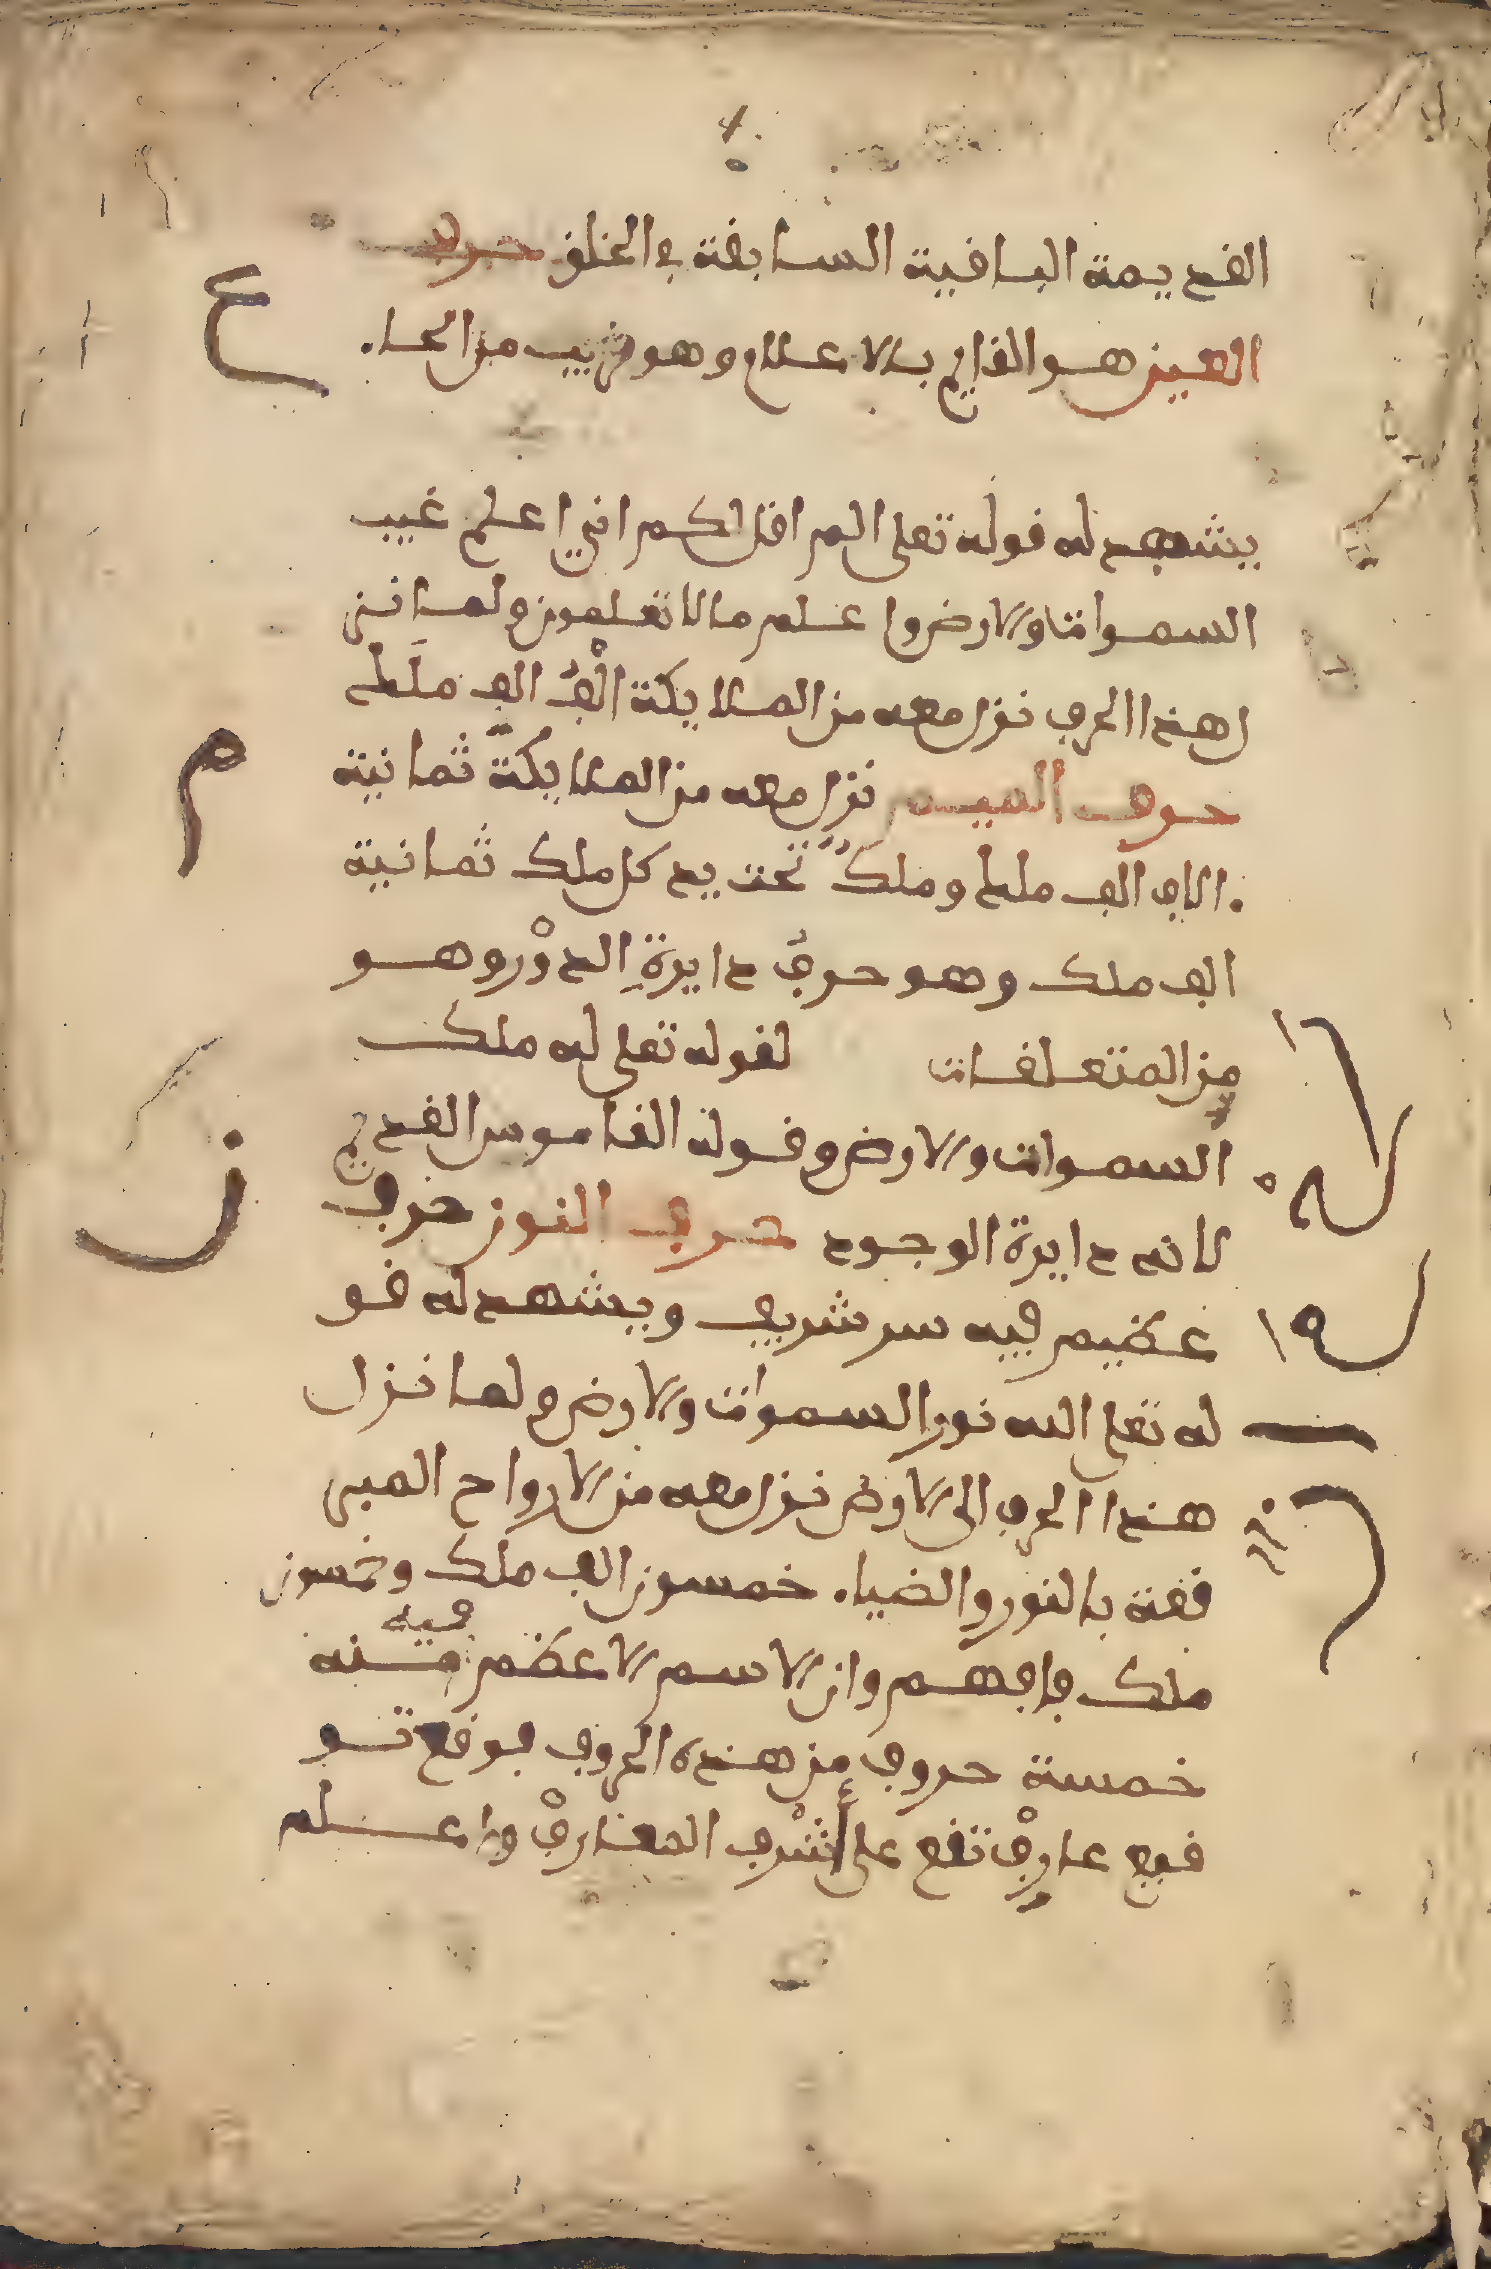 القديمة الباقية السابقة في الخلق حرف
ع
العين هو القايم بالاعلام وهو قريب من الحاء
يشهد له قوله تعلى الم اقل لكم اني اعلم غيب
السموات والارض واعلم ما لا تعلمون ولما نز
ل هذا الحرف نزل معه من الملايكة الف الف ملك
م
حرف الميم نزل معه من الملايكة ثمانية
الاف الف ملك وملك تحت يد كل ملك ثمانية
الف ملك وهو حرف دايرة الدور وهو
من المتعلقات لقوله تعلى له ملك
السموات والارض وقوله القاموس القديم
ن
لانه دايرة الوجود حرف النون حرف
عظيم فيه سر شريف ويشهد له قو
له تعلى الله نور السموات والارض ولما نزل
هذا الحرف الى الارض نزل معه من الارواح المبى
ققة بالنور والضياء خمسون الف ملك وخمسون
ملك فافهم وان الاسم الاعظم فيه منه
خمسة حروف من هذه الحروف فوقع تو
قيع عارف تقع على اشرف المعارف واعلم